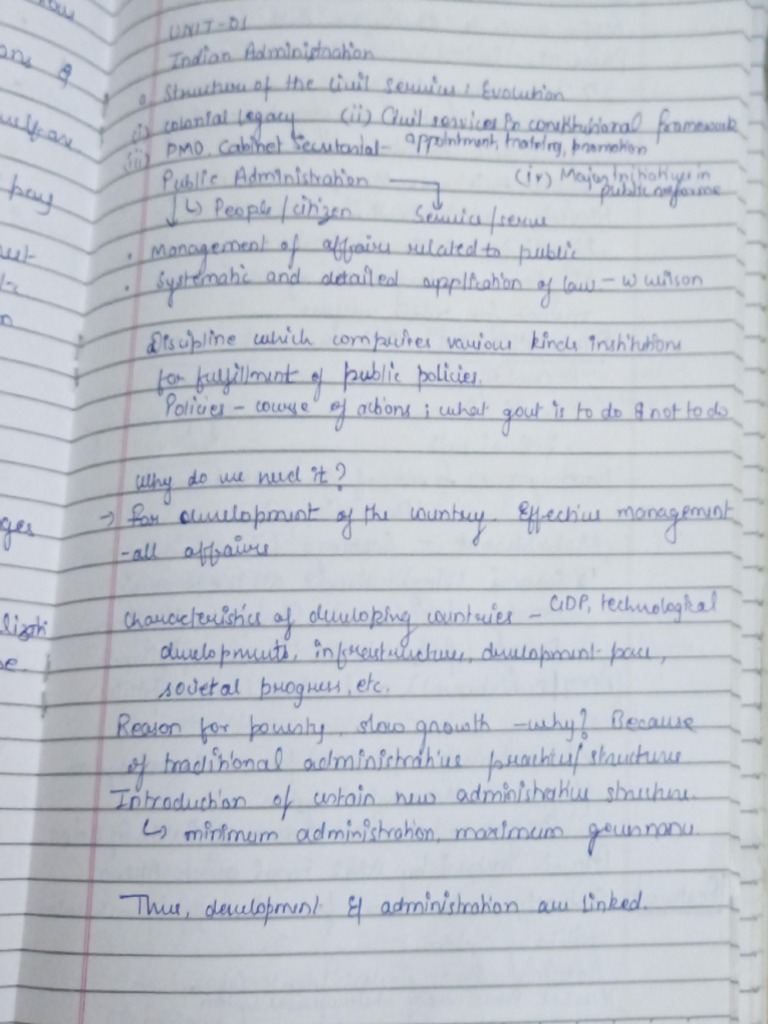 UNIT-01
Indian Administration
Structure of the Civil Services: Evolution
(i) Colonial legacy (ii) Civil services in constitutional framework
(iii) PMO, Cabinet Secretarial- appointment, training, promotion
Public Administration → (iv) Major initiatives in public reforms
↓ ↳ People/citizen Service/serve
• Management of affairs related to public
• Systematic and detailed application of law - W Wilson
Discipline which comprises various kinds institutions
for fulfillment of public policies.
Policies - course of actions; what govt is to do & not to do
Why do we need it?
→ For development of the country. Effective management
- all affairs
Characteristics of developing countries - GDP, technological
developments, infrastructure, development pace,
societal progress, etc.
Reason for poverty, slow growth - why? Because
of traditional administrative practices/structure
Introduction of certain new administrative structure.
↳ minimum administration, maximum governance
Thus, development & administration are linked.
ons &
welfare
pay
ges